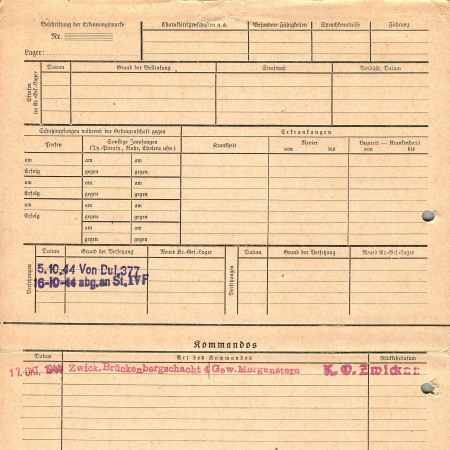 Beschriftung der Erkennungsmarke
Nr.
Lager:
Charaktereigenschaften u. a.
Besondere Fähigkeiten
Sprachkenntnisse
Führung
Strafen im Kr.-Gef.-Lager
Datum
Grund der Bestrafung
Strafmaß
Verbüßt, Datum
Schutzimpfungen während der Gefangenschaft gegen
Erkrankungen
Pocken
Sonstige Impfungen
(Ty.-Paraty., Ruhr, Cholera usw.)
Krankheit
Revier
von bis
Lazarett — Krankenhaus
von bis
am am am
Erfolg gegen gegen
am am am
Erfolg gegen gegen
am am am
Erfolg gegen gegen
am am
gegen gegen
Versetzungen
Datum Grund der Versetzung Neues Kr.-Gef.-Lager
Versetzungen
Datum Grund der Versetzung Neues Kr.-Gef.-Lager
5.10.44 Von Dul.377
16-10-44 abg. an St. IVF
Kommandos
Datum Art des Kommandos Rückkehrdatum
17. OKT. 1944 Zwick. Brückenbergschacht 4 Gew. Morgenstern K. O. Zwickau